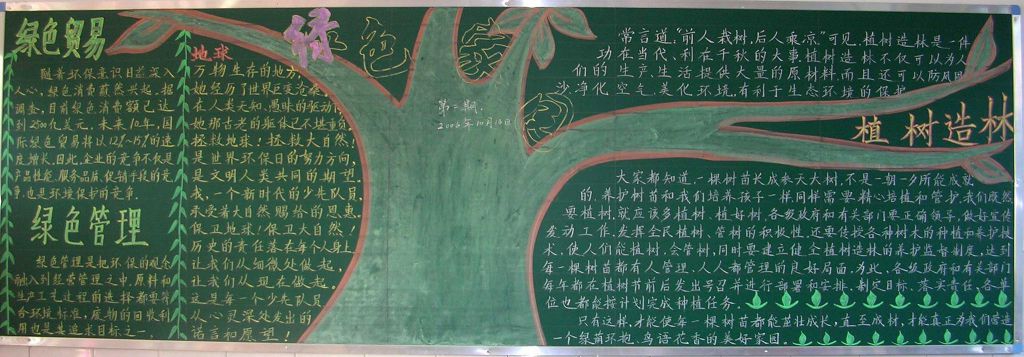 绿色贸易
随着环保意识日益深入
人心，绿色消费蔚然兴起，据
调查，目前绿色消费额已达
到2500亿美元，未来10年，国
际绿色贸易将以12%-15%的速
度增长。因此，企业的竞争不仅是
产品性能、服务品质、促销手段的竞
争，也是环境保护的竞争。
绿色管理
绿色管理是把环保的观念
融入到经营管理之中，原料和
生产工艺过程的选择都要符
合环境标准，废物的回收利
用也是其追求目标之一。
地球
万物生存的地方，
她经历了世界巨变沧桑
在人类无知、愚昧的驱动
她那古老的躯体已不堪重负
拯救地球！拯救大自然！
是世界环保日的努力方向，
是文明人类共同的期望。
我，一个新时代的少先队员
承受着大自然赐给的恩惠。
保卫地球！保卫大自然！
历史的责任落在每个人身上
让我们从细微处做起，
让我们从现在做起。
这是每一个少先队员
从心灵深处发出的
诺言和愿望！
绿色
第二期，
2006年10月16日
常言道，"前人栽树，后人乘凉"可见，植树造林是一件
功在当代、利在千秋的大事，植树造林不仅可以为人
们的生产、生活提供大量的原材料，而且还可以防风固
沙、净化空气、美化环境，有利于生态环境的保护。
植树造林
大家都知道，一棵树苗长成参天大树，不是一朝一夕所能成就
的，养护树苗和我们培养孩子一样同样需要精心培植和管护。我们既然
要植树，就应该多植树、植好树，各级政府和有关部门要正确领导，做好宣传
发动工作，发挥全民植树、管树的积极性，还要传授各种树木的种植和养护技
术，使人们能植树，会管树，同时要建立健全植树造林的养护监督制度，达到
每一棵树苗都有人管理、人人都管理的良好局面，为此，各级政府和有关部门
每年都在植树节前后发出号召并进行部署和安排，制定目标，落实责任，各单
位也都能按计划完成种植任务。
只有这样，才能使每一棵树苗都能茁壮成长，直至成材，才能真正为我们营造
一个绿荫环抱、鸟语花香的美好家园。